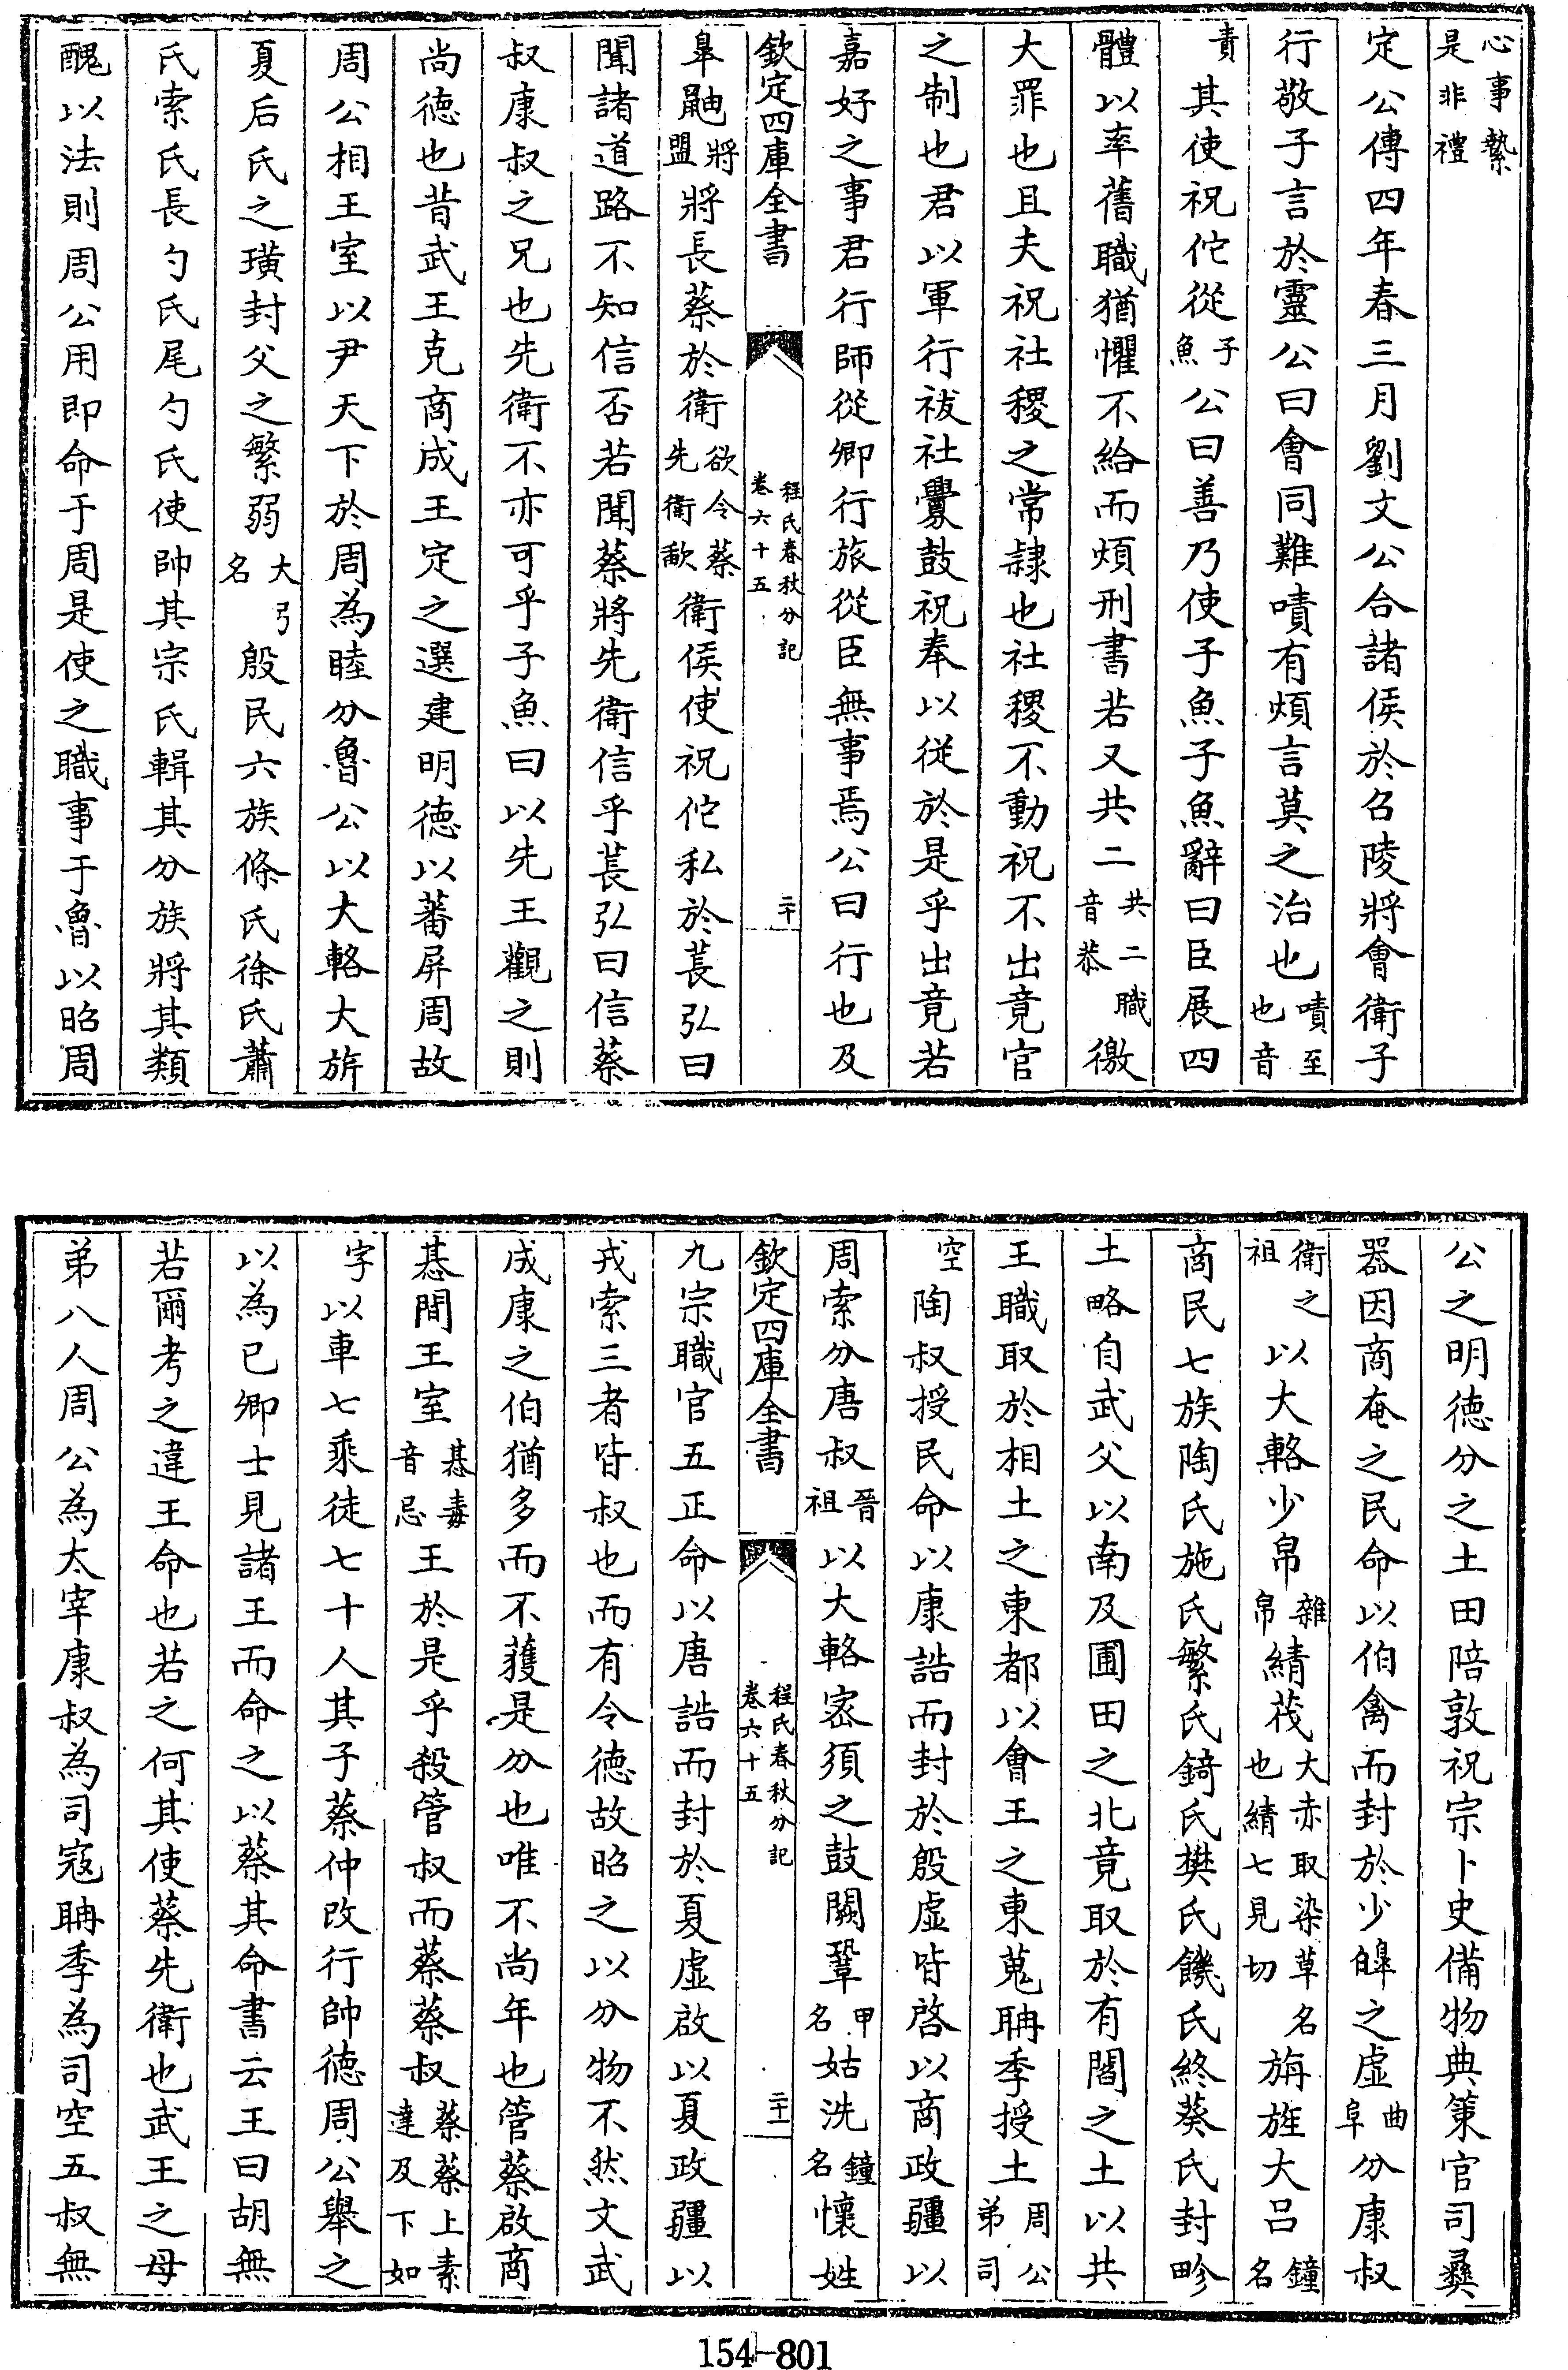 心事繫是非禮
定公傳四年春三月劉文公合諸侯於召陵將會衛子
行敬子言於靈公曰會同難嘖有煩言莫之治也嘖至也音
責其使祝佗從子魚公曰善乃使子魚子魚辭曰臣展四
體以率舊職猶懼不給而煩刑書若又共二共二職音恭徼
大罪也且夫祝社稷之常隷也社稷不動祝不出竟官
之制也君以軍行祓社釁鼓祝奉以從於是乎出竟若
嘉好之事君行師從卿行旅從臣無事焉公曰行也及
欽定四庫全書 程氏春秋分記卷六十五 二十
臯鼬將盟將長蔡於衛欲令蔡先衛歃衛侯使祝佗私於萇弘曰
聞諸道路不知信否若聞蔡將先衛信乎萇弘曰信蔡
叔康叔之兄也先衛不亦可乎子魚曰以先王觀之則
尚德也昔武王克商成王定之選建明德以蕃屏周故
周公相王室以尹天下於周為睦分魯公以大輅大旂
夏后氏之璜封父之繁弱大弓名殷民六族條氏徐氏蕭
氏索氏長勺氏尾勺氏使帥其宗氏輯其分族將其類
醜以法則周公用即命于周是使之職事于魯以昭周
公之明德分之土田陪敦祝宗卜史備物典策官司彞
器因商奄之民命以伯禽而封於少皞之虛曲阜分康叔
衛之祖以大輅少帛雜帛綪茷大赤取染草名也綪七見切旃旌大呂鐘名
商民七族陶氏施氏繁氏錡氏樊氏饑氏終葵氏封畛
土略自武父以南及圃田之北竟取於有閻之土以共
王職取於相土之東都以會王之東蒐聃季授土周公弟司
空陶叔授民命以康誥而封於殷虛皆啓以商政疆以
周索分唐叔晉祖以大輅密須之鼓闕鞏甲名姑洗鐘名懷姓
欽定四庫全書 程氏春秋分記卷六十五 二十一
九宗職官五正命以唐誥而封於夏虛啟以夏政疆以
戎索三者皆叔也而有令德故昭之以分物不然文武
成康之伯猶多而不獲是分也唯不尚年也管蔡啟商
惎間王室惎毒音忌王於是乎殺管叔而蔡蔡叔蔡蔡上素達及下如
字以車七乘徒七十人其子蔡仲改行帥德周公舉之
以為已卿士見諸王而命之以蔡其命書云王曰胡無
若爾考之違王命也若之何其使蔡先衛也武王之母
弟八人周公為太宰康叔為司寇聃季為司空五叔無
154-801